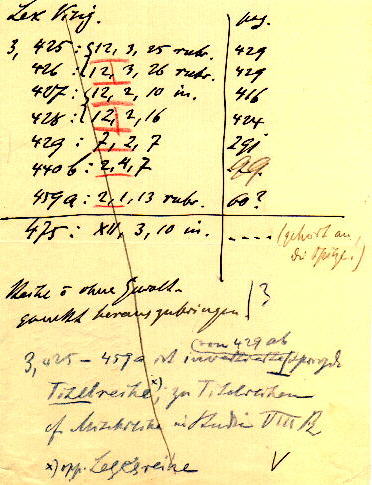 Lex Visig. pag.
3, 425 : 12, 3, 25 rubr. 429
426 : 12, 3, 26 rubr. 429
427 : 12, 2, 10 in. 416
428 : 12, 2, 16 424
429 : 7, 2, 7 291
440 b : 2, 4, 7 99
459 a : 2, 1, 13 rubr. 60?
475 : XII, 3, 10 in. .... (gehört an
die Spitze.)
Reihe ohne Gewalt-
herauszubringen ?
(von 429 ab
3, 425 – 459 a ist
Titelreihe x); zu Titelreihen
cf. in Studie VIII
x) opp. Legesreihe V